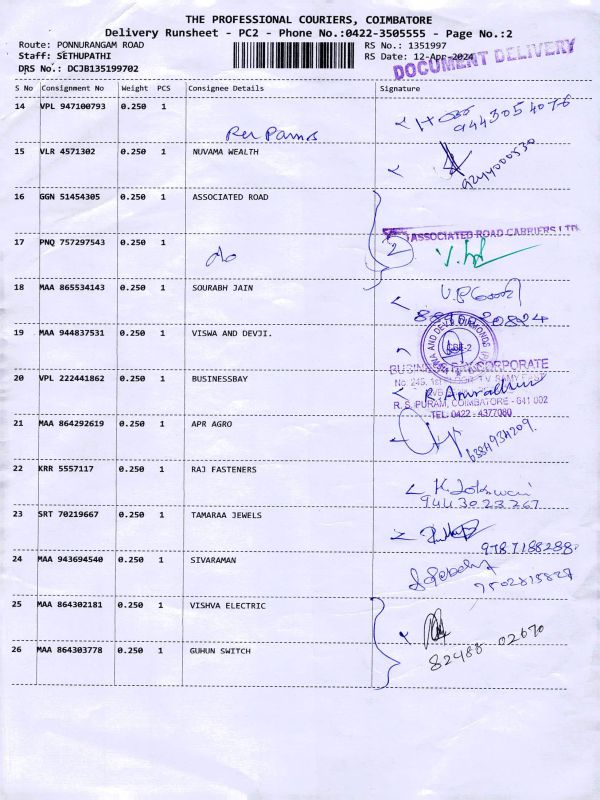 THE PROFESSIONAL COURIERS, COIMBATORE
Delivery Runsheet - PC2 - Phone No.:0422-3505555 - Page No.:2
Route: PONNURANGAM ROAD RS No.: 1351997
Staff: SETHUPATHI RS Date: 12-Apr-2024
DRS No.: DCJB135199702 DOCUMENT DELIVERY
S No Consignment No Weight PCS Consignee Details Signature
14 VPL 947100793 0.250 1
9443054076
15 VLR 4571302 0.250 1 NUVAMA WEALTH
9244000530
16 GGN 51454305 0.250 1 ASSOCIATED ROAD
ASSOCIATED ROAD CARRIERS LTD
17 PNQ 757297543 0.250 1 do 2
18 MAA 865534143 0.250 1 SOURABH JAIN
19 MAA 944837531 0.250 1 VISWA AND DEVJI.
VISWA AND DEVJI DIAMONDS
CBE-2
20 VPL 222441862 0.250 1 BUSINESSBAY
R. Anuradha
R.S. PURAM, COIMBATORE - 641 002
TEL: 0422 - 4377080
21 MAA 864292619 0.250 1 APR AGRO
6384934209
22 KRR 5557117 0.250 1 RAJ FASTENERS
9443023267
23 SRT 70219667 0.250 1 TAMARAA JEWELS
9787188288
24 MAA 943694540 0.250 1 SIVARAMAN
7502815827
25 MAA 864302181 0.250 1 VISHVA ELECTRIC
82488 02670
26 MAA 864303778 0.250 1 GUHUN SWITCH